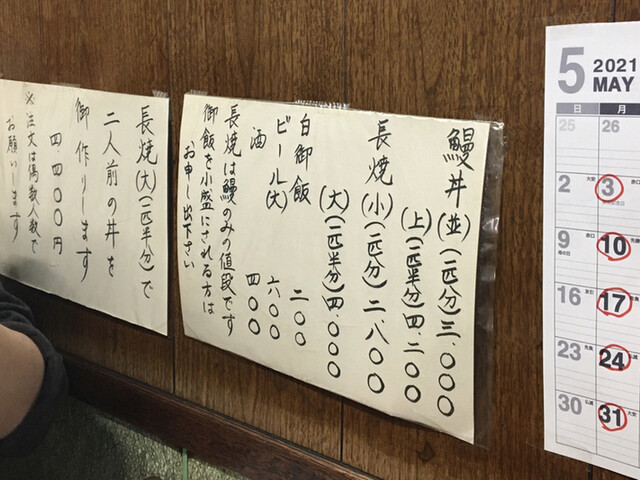 鰻丼(並)(一匹分)三.〇〇〇
(上)(一匹半分)四.二〇〇
長焼(小)(一匹分)二.八〇〇
(大)(一匹半分)四.〇〇〇
白御飯 二〇〇
ビール(大) 六〇〇
酒 四〇〇
長焼は鰻のみの値段です
御飯を小盛にされる方は
お申し出下さい
長焼(大)(一匹半分)で
二人前の丼を
御作りします
四.四〇〇円
※注文は偶数人数で
お願いします
5 2021
MAY
日 月
25 26
2 3
9 10
16 17
23 24
30 31